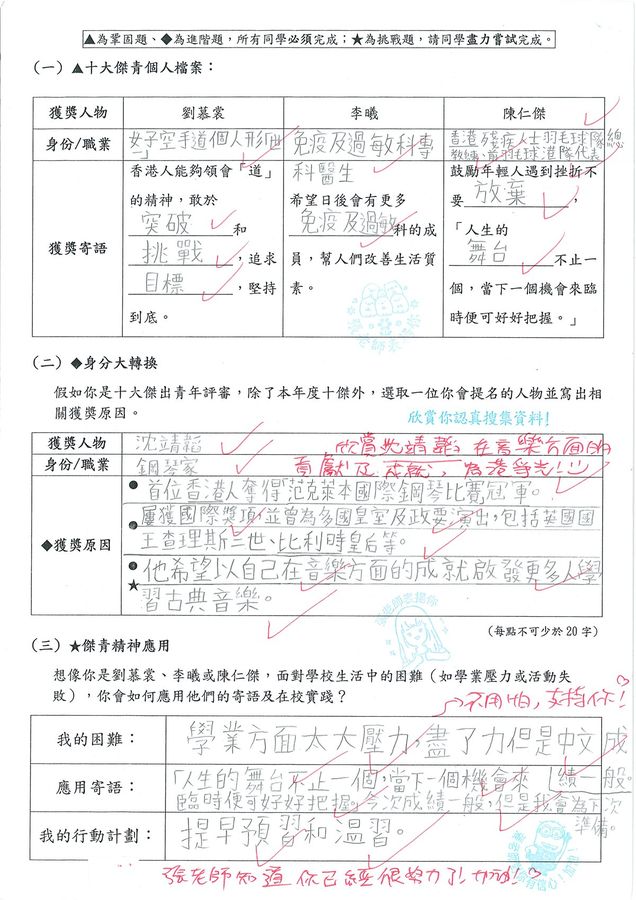 ▲為鞏固題、◆為進階題，所有同學必須完成；★為挑戰題，請同學盡力嘗試完成。
（一）▲十大傑青個人檔案：
獲獎人物 劉慕裳 李曦 陳仁傑
身份/職業
女子空手道個人形「世
免疫及過敏科專
科醫生
香港殘疾人士羽毛球隊總
教練、前羽毛球港隊代表
獲獎寄語
香港人能夠領會「道」
的精神，敢於
突破 和
挑戰 ，追求
目標 ，堅持
到底。
希望日後會有更多
免疫及過敏 科的成
員，幫人們改善生活質
素。
鼓勵年輕人遇到挫折不
要 放棄 ，
「人生的
舞台 不止一
個，當下一個機會來臨
時便可好好把握。」
（二）◆身分大轉換
假如你是十大傑出青年評審，除了本年度十傑外，選取一位你會提名的人物並寫出相
關獲獎原因。
欣賞你認真搜集資料!
獲獎人物 沈靖韜
身份/職業 鋼琴家
欣賞沈靖韜在音樂方面的
貢獻及成就，為港爭光！
◆獲獎原因
● 首位香港人奪得「范克萊本國際鋼琴比賽冠軍」。
● 屢獲國際獎項，並曾為多國皇室及政要演出，包括英國國
王查理斯三世、比利時皇后等。
● 他希望以自己在音樂方面的成就啟發更多人學
★ 習古典音樂。
（每點不可少於 20 字）
（三）★傑青精神應用
想像你是劉慕裳、李曦或陳仁傑，面對學校生活中的困難（如學業壓力或活動失
敗），你會如何應用他們的寄語及在校實踐？
不用怕，支持你！
我的困難： 學業方面太大壓力，盡了力但是中文成
績一般。
應用寄語： 「人生的舞台不止一個，當下一個機會來
臨時便可好好把握。今次成績一般，但是我會為下次
準備。
我的行動計劃： 提早預習和溫習。
張老師知道你已經很努力了！加油！